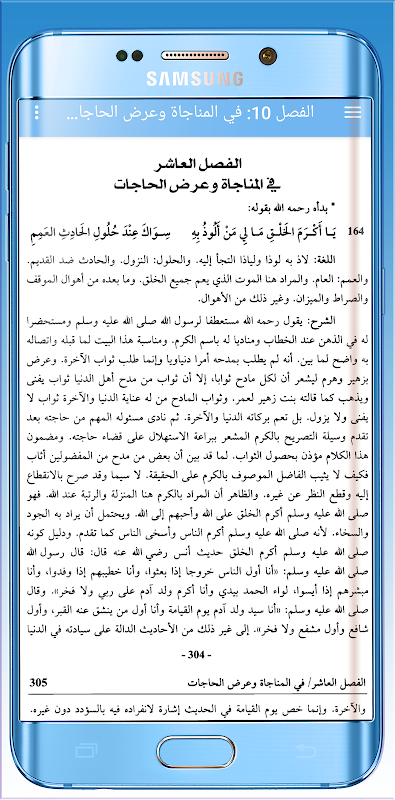 SAMSUNG
الفصل 10: في المناجاة وعرض الحاجا...
الفصل العاشر
في المناجاة وعرض الحاجات
* بدأه رحمه الله بقوله:
164 يَا أَكْرَمَ الْخَلْقِ مَا لِي مَنْ أَلُوذُ بِهِ سِوَاكَ عِنْدَ حُلُولِ الْحَادِثِ الْعَمِمِ
اللغة: لاذ به لوذا ولياذا التجأ إليه. والحلول: النزول. والحادث ضد القديم.
والعمم: العام. والمراد هنا الموت الذي يعم جميع الخلق. وما بعده من أهوال الموقف
والصراط والميزان. وغير ذلك من الأهوال.
الشرح: يقول رحمه الله مستعطفا لرسول الله صلى الله عليه وسلم ومستحضرا
له في الذهن عند الخطاب ومناديا له باسم الكرم. ومناسبة هذا البيت لما قبله واتصاله
به واضح لما بين. أنه لم يطلب بمدحه أمرا دنياويا وإنما طلب ثواب الآخرة. وعرض
بزهير وهرم ليشعر أن لكل مادح ثوابا، إلا أن ثواب من مدح أهل الدنيا ثواب يفنى
ويذهب كما قالته بنت زهير لعمر. وثواب المادح من له عناية الدنيا والآخرة ثواب لا
يفنى ولا يزول. بل تعم بركاته الدنيا والآخرة. ثم نادى مسئوله المهم من حاجته بعد
تقدم وسيلة التصريح بالكرم المشعر ببراعة الاستهلال على قضاء حاجته. ومضمون
هذا الكلام مؤذن بحصول الثواب. لما قد بين أن بعض من مدح من المفضولين أثاب
فكيف لا يثيب الفاضل الموصوف بالكرم على الحقيقة. لا سيما وقد صرح بالانقطاع
إليه وقطع النظر عن غيره. والظاهر أن المراد بالكرم هنا المنزلة والرتبة عند الله. فهو
صلى الله عليه وسلم أكرم الخلق على الله وأحبهم إلى الله. ويحتمل أن يراد به الجود
والسخاء. لأنه صلى الله عليه وسلم أكرم الناس وأسخى الناس كما تقدم. ودليل كونه
صلى الله عليه وسلم أكرم الخلق حديث أنس رضي الله عنه قال: قال رسول الله
صلى الله عليه وسلم: «أنا أول الناس خروجا إذا بعثوا، وأنا خطيبهم إذا وفدوا، وأنا
مبشرهم إذا أيسوا، لواء الحمد بيدي وأنا أكرم ولد آدم على ربي ولا فخر». وقال
صلى الله عليه وسلم: «أنا سيد ولد آدم يوم القيامة وأنا أول من ينشق عنه القبر، وأول
شافع وأول مشفع ولا فخر». إلى غير ذلك من الأحاديث الدالة على سيادته في الدنيا
- 304 -
الفصل العاشر/ في المناجاة وعرض الحاجات 305
والآخرة. وإنما خص يوم القيامة في الحديث إشارة لانفراده فيه بالسؤدد دون غيره.